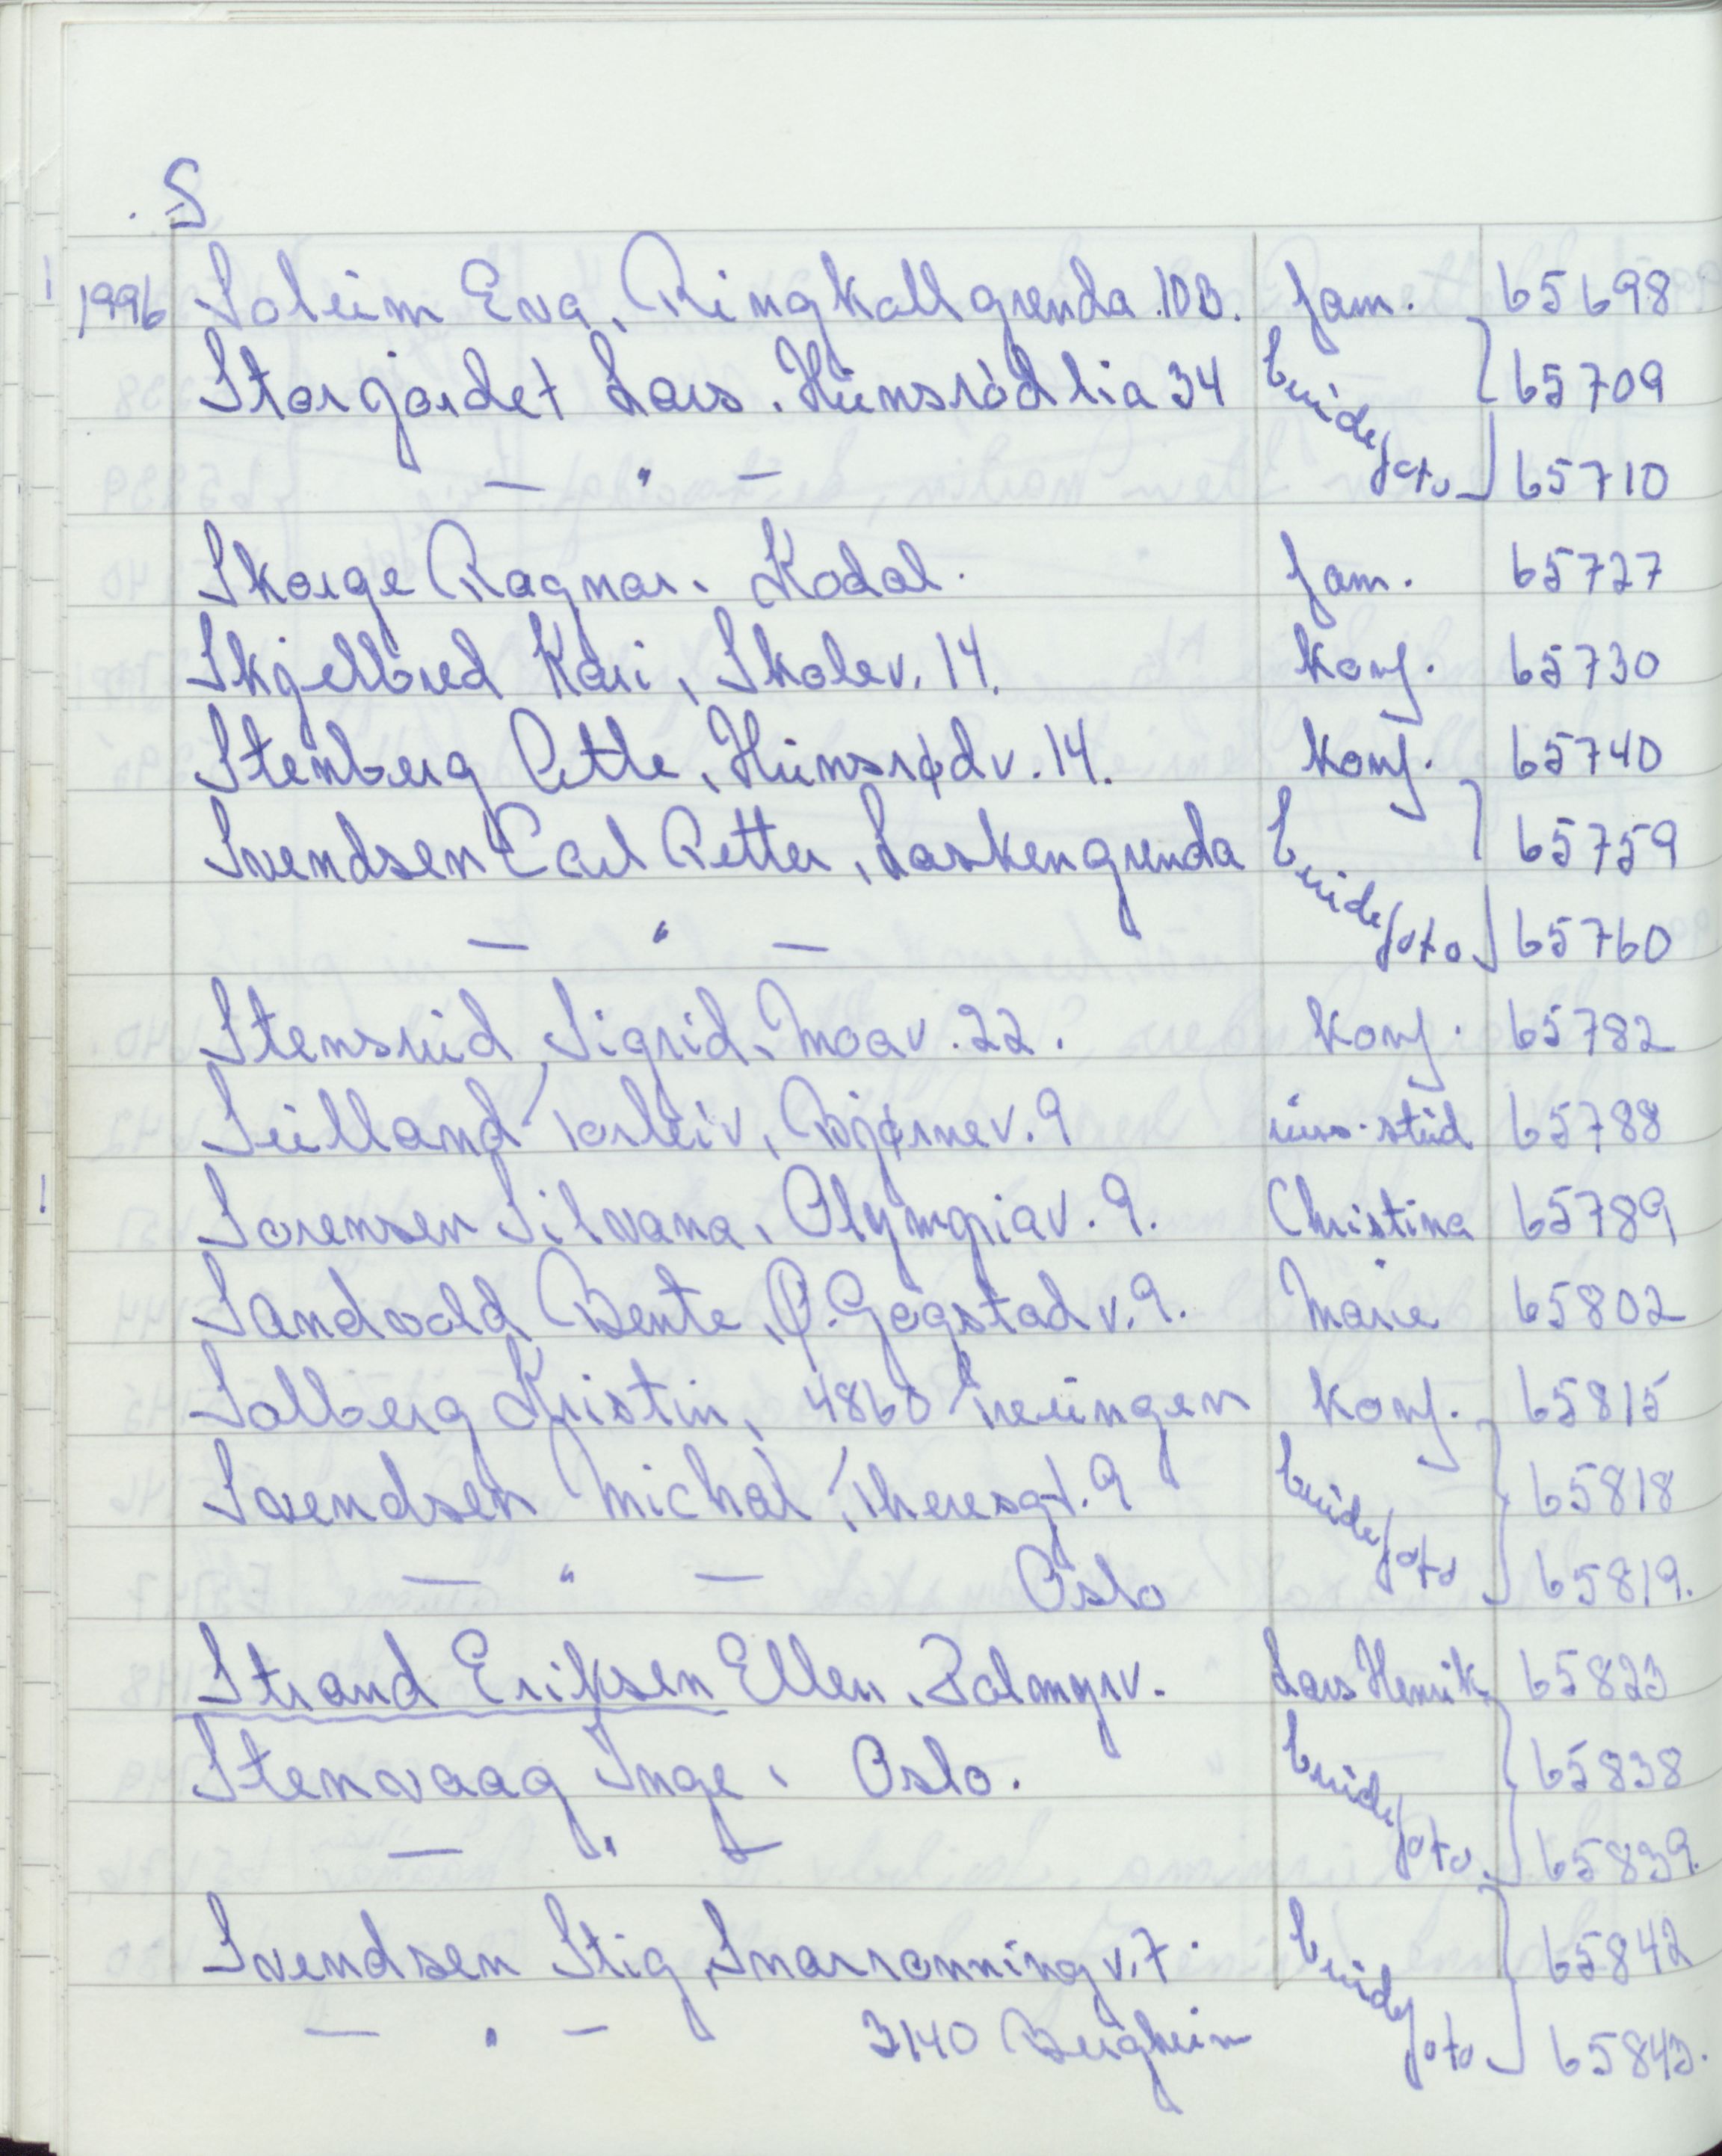 S
1996 Soleim Eva, Ringkollgrenda 10B. fam. 65698
Storjordet Lars. Heimsrødlia 34 brude 65709
— " — foto 65710
Skorge Ragnar. Kodal. fam. 65727
Skjelbred Kari, Skolev. 14. konf. 65730
Stenberg Petle, Heimsrødv. 14. konf. 65740
Svendsen Carl Petter, Laskengrenda brude 65759
— " — foto 65760
Stensrud Sigrid. Moav. 22. konf. 65782
Torleiv, Bjørnev. 9 russ. stud 65788
Sorensen Silvana, Olympiav. 9. Christina 65789
Sandvold Bente, P. Gogstadv. 9. Marie 65802
Solberg Kristin, 4860 Treungen konf. 65815
Svendsen Michal, Theresgt. 9 brude 65818
— " — Oslo foto 65819.
Strand Eriksen Ellen, Solmyrv. Lars Henrik 65823
Stenvaag Inge, Oslo. brude 65838
— " — foto. 65839.
Svendsen Stig, Snarrønningv. 7. brude 65842
— " — 3140 Bergheim foto 65843.